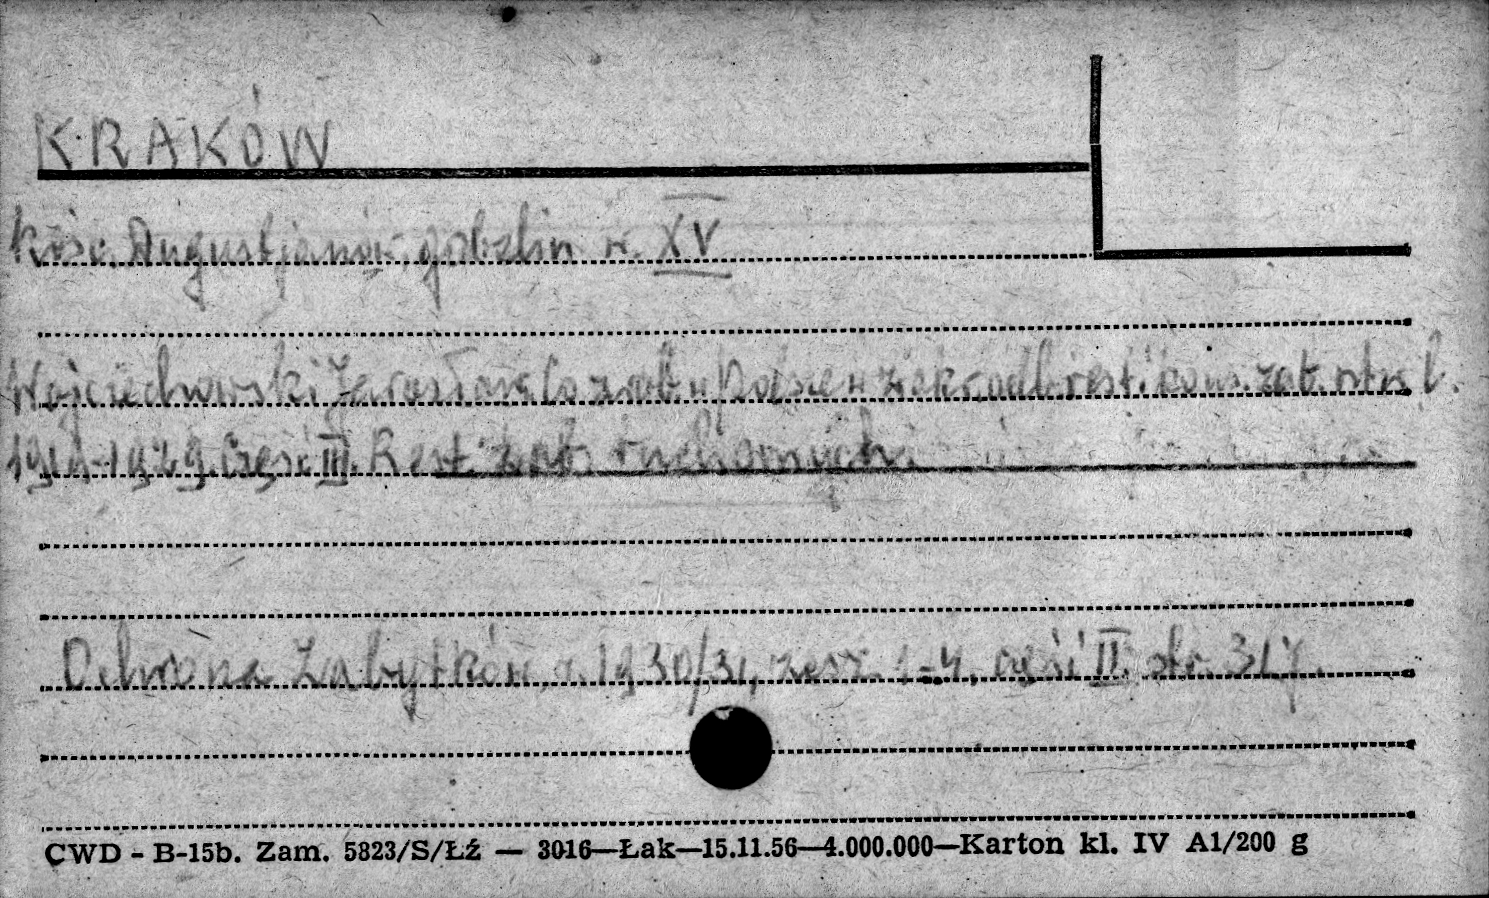 KRAKÓW
Kośc. Augustjanów, gobelin w. XV
Wojciechowski Jarosław, Co zrob. w Polsce w zakr. odb. rest. i kons. zab. szt. w l.
1919-1929. Część III. Rest. zab. ruchomych.
Ochrona Zabytków, r. 1930/31, zesz. 1-4, część II. str. 317.
CWD - B-15b. Zam. 5823/S/Łź — 3016—Łak—15.11.56—4.000.000—Karton kl. IV A1/200 g